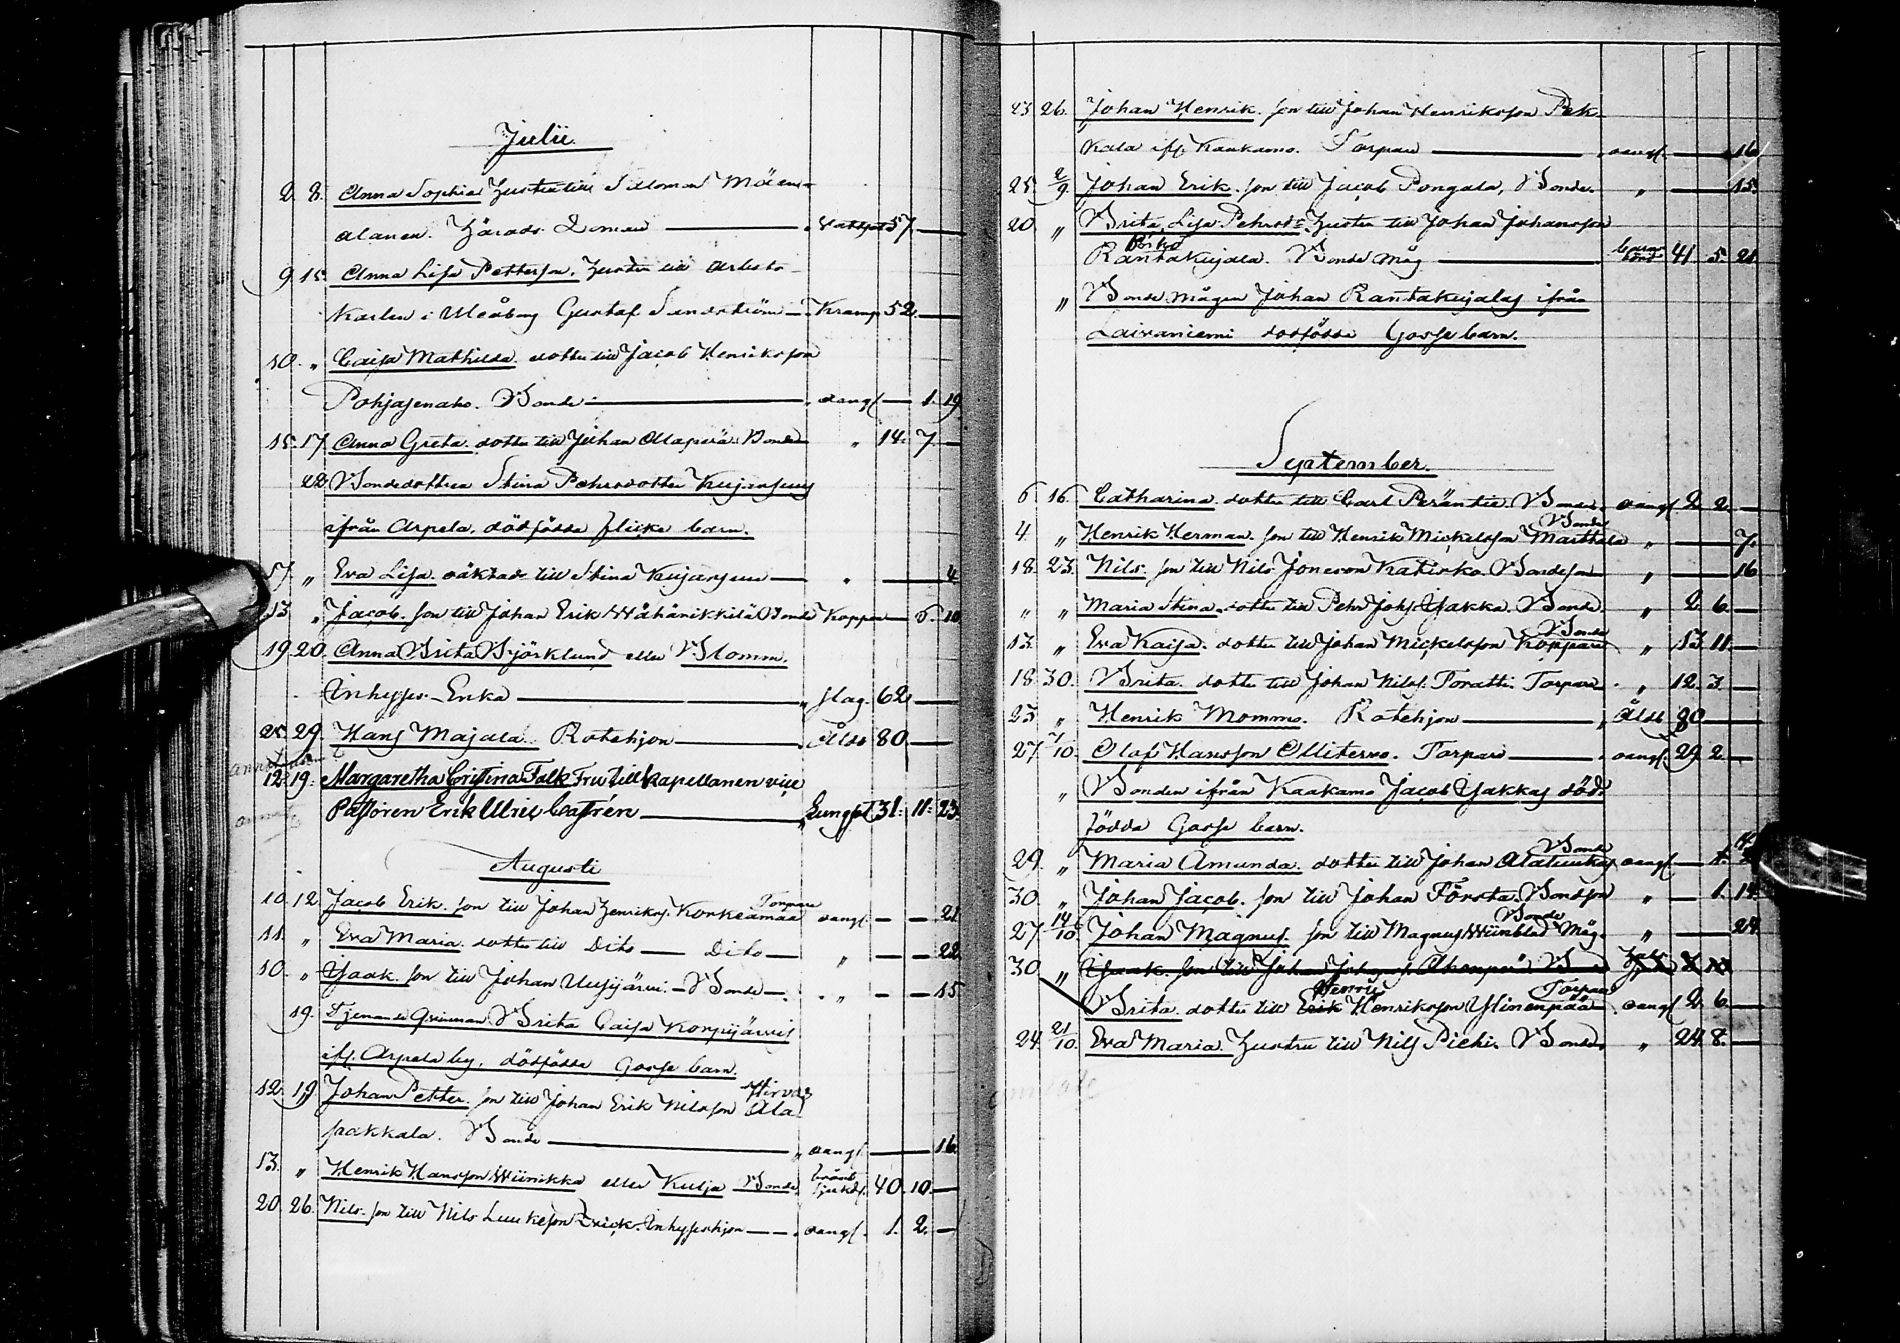 Julii.
2. 8. Anna Sophia hustru till Salomon Mäen-
alanen. Härads Domare — Vattsot 57. —
9. 15. Anna Lisa Pettersson. hustru till Arbets-
Karlen i Uleåborg Gustaf Sandström — Kramp 52 —
10. „ Caisa Mathilda. dotter till Jacob Henriksson
Pohjasenaho. Bonde — oangf — 1. 19
15. 17. Anna Greta. dotter till Johan Ollaperä. Bonde „ 14. 7. —
22. Bondedottren Stina Pehrsdotter Kujansuus
ifrån Arpela. dödfödda flicke barn.
17. „ Eva Lisa. oäkta d. till Stina Kujansuu — „ — 4
13. „ Jacob. son till Johan Erik Wähänikkilä Bonde Koppor — 6. 10
19. 20. Anna Brita Björklund eller Blomm.
Inhyses-Enka — slag. 62 —
25. 29. Hans Majala. Rotehjon — Ålds 80 —
12. 19. Margaretha Cristina Falk Fru till Kapellanen vice
Pastoren Erik Ulric Castrén — Lungsot 31. 11. 23.
Augusti
10. 12. Jacob Erik. son till Johan Henrikss. Korkeamaa Torpare oangf. — — 21.
11. „ Eva Maria. dotter till Dito — Dito — „ — — 22
10. „ Isaak. son till Johan Uusijärvi. — Bonde — „ — — 15
19. Tjenande Qvinnan Brita Caisa Korpijärvis
ifr. Arpela by. dödfödda Gosse barn.
12. 19. Johan Petter. son till Johan Erik Nilsson Hirvas Ala
paakkala. Bonde — oangf — 16.
13. „ Henrik Hansson Wiinikka eller Kutja Bonde bröst sjukd. 40. 10. —
20. 26. Nils. son till Nils Luukesson Erick. Inhysehjon — oangf. 1. 2. —
23 26. Johan Henrik. son till Johan Henriksson Pek-
kala ifr. Kaakamo. Torpare — oangf. — 16
25. 2/9. Johan Erik. son till Jacob Pongala, Bonde. „ — 15.
20. „ Brita Lisa Pehrsdr. Hustru till Johan Johansson
Rantakujala. Bonde Måg — barns börd 41. 5. 21.
„ Bonde Mågen Johan Rantakujalas ifrån
Laivaniemi dödfödde Gosse barn.
September.
6. 16. Catharina. dotter till Carl Peräntie. Bonde. oangf 2. 2. —
4. „ Henrik Herman. son till Henrik Mickelsson Marthala Bonde „ — 7.
18. 23. Nils. son till Nils Jonesson Katisko. Bondeson — „ — 16
„ „ Maria Stina. dotter till Pehr Johs. Yakka. Bonde. „ 2. 6. —
13. „ Eva Kaisa. dotter till Johan Mickelsson Koppare Bonde „ 13. 11. —
18. 30. Brita. dotter till Johan Nilss. Poratti. Torpare. „ 12. 3. —
23. „ Henrik Mommo. Rotehjon — Ålds. 80 —
27. 7/10. Olaf Hansson Ollitervo. Torpare — oangf. 29. 2. —
„ Bonden ifrån Kaakamo Jacob Yakkas död-
födda Gosse barn.
29. „ Maria Amunda. dotter till Johan Alatuuka Bonde oangf —
30. „ Johan Jacob. son till Johan Första. Bondeson „ — 1. 14.
27. 14/10. Johan Magnus. son till Magnus Wiinblad Bonde Måg. „ — 24.
30. „ Isaak. son till Johan
Brita. dotter till Erik Henrik Henriksson Ylinenpää Torpare oangf 2. 6. —
24. 21/10. Eva Maria. Hustru till Nils Pieki. Bonde. „ 24. 8. —